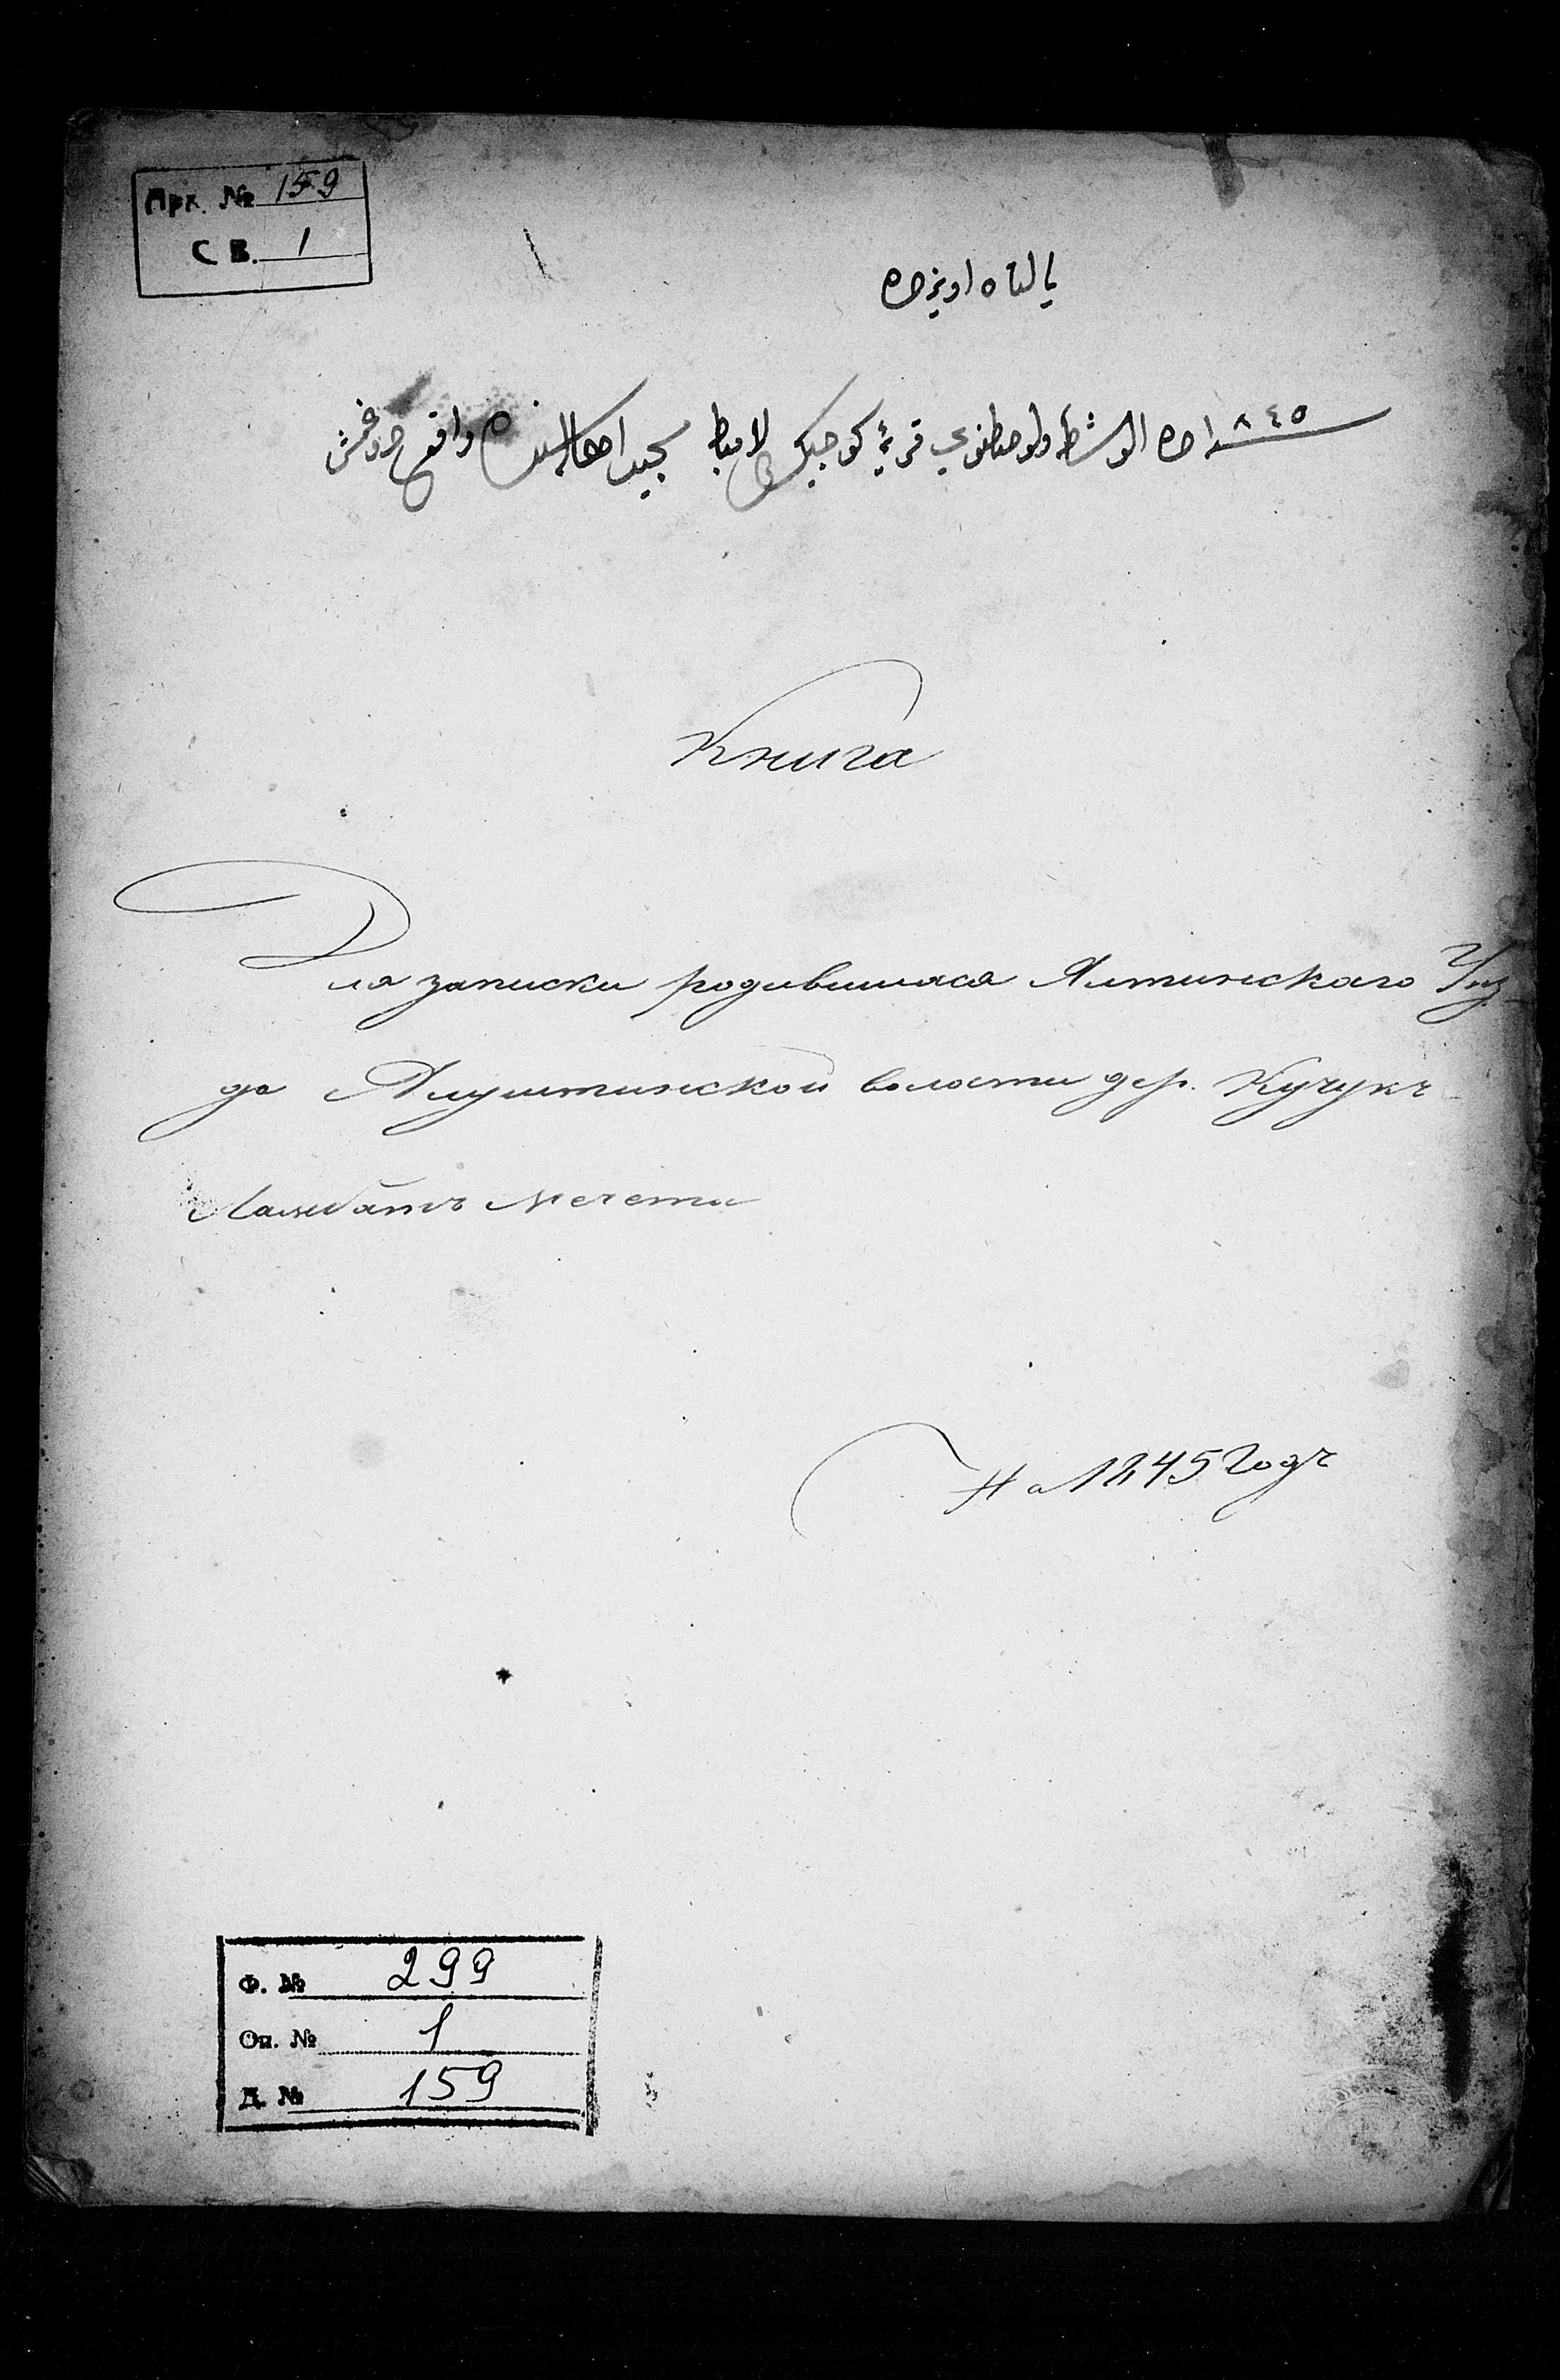 Арх. № 159
СВ. 1
يالتاه اويزده
١٨٤٥ قريۀ كوچك لامباط واقع
Книга
Для записки родившихся Ялтинскаго Уѣз-
да Алуштинской волости дер. Кучукъ
Ламбатъ мечети
На 1845 Годъ
Ф. № 299
Оп. № 1
Д. № 159